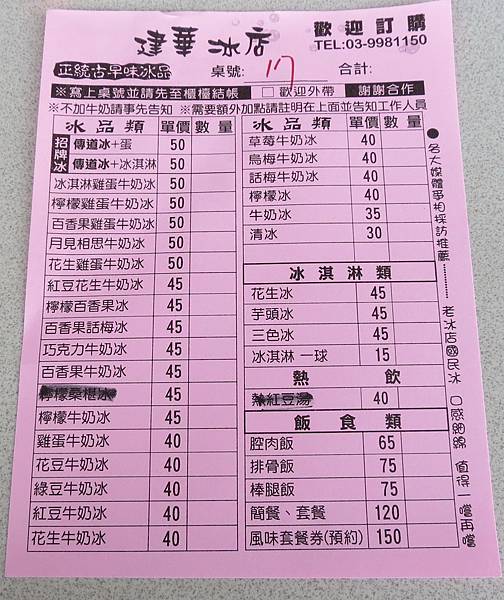 建華冰店
歡迎訂購
TEL:03-9981150
正統古早味冰品
桌號: 17 合計:
※寫上桌號並請先至櫃檯結帳 □ 歡迎外帶 謝謝合作
※不加牛奶請事先告知 ※需要額外加點請註明在上面並告知工作人員
冰品類 單價 數量
招牌冰
傳道冰+蛋 50
傳道冰+冰淇淋 50
冰淇淋雞蛋牛奶冰 50
檸檬雞蛋牛奶冰 50
百香果雞蛋牛奶冰 50
月見相思牛奶冰 50
花生雞蛋牛奶冰 50
紅豆花生牛奶冰 45
檸檬百香果冰 45
百香果話梅冰 45
巧克力牛奶冰 45
百香果牛奶冰 45
檸檬桑椹冰 45
檸檬牛奶冰 45
雞蛋牛奶冰 40
花豆牛奶冰 40
綠豆牛奶冰 40
紅豆牛奶冰 40
花生牛奶冰 40
冰品類 單價 數量
草莓牛奶冰 40
烏梅牛奶冰 40
話梅牛奶冰 40
檸檬冰 40
牛奶冰 35
清冰 30
冰淇淋類
花生冰 45
芋頭冰 45
三色冰 45
冰淇淋 一球 15
熱飲
紅豆湯 40
飯食類
腔肉飯 65
排骨飯 75
棒腿飯 75
簡餐、套餐 120
風味套餐券(預約) 150
●名大媒體爭相採訪推薦............老冰店國民冰 口感綿綿 值得一嚐再嚐